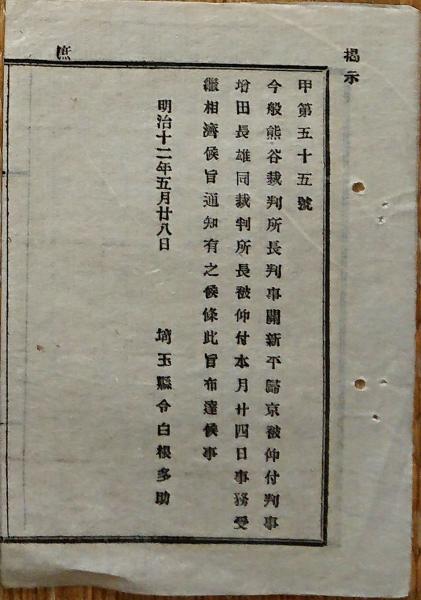 掲示
甲第五十五號
今般熊谷裁判所長判事關新平歸京被仰付判事
増田長雄同裁判所長被仰付本月廿四日事務受
繼相濟候旨通知有之候條此旨布達候事
明治十二年五月廿八日
埼玉縣令白根多助
庶